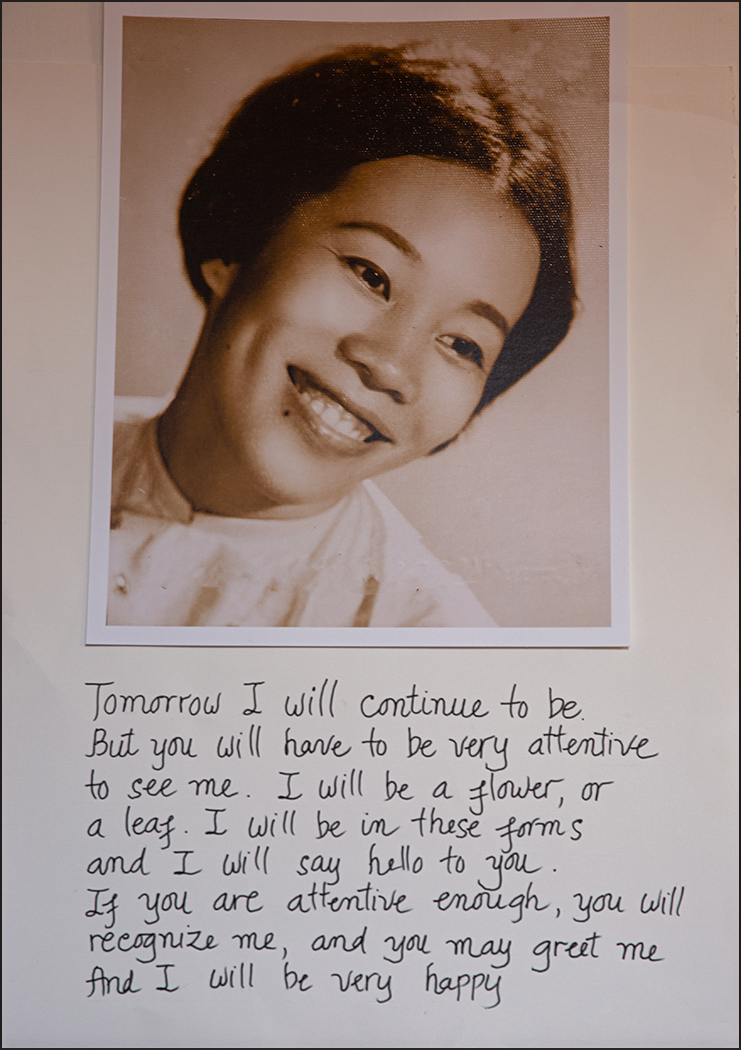 Tomorrow I will continue to be.
But you will have to be very attentive
to see me. I will be a flower, or
a leaf. I will be in these forms
and I will say hello to you.
If you are attentive enough, you will
recognize me, and you may greet me
And I will be very happy